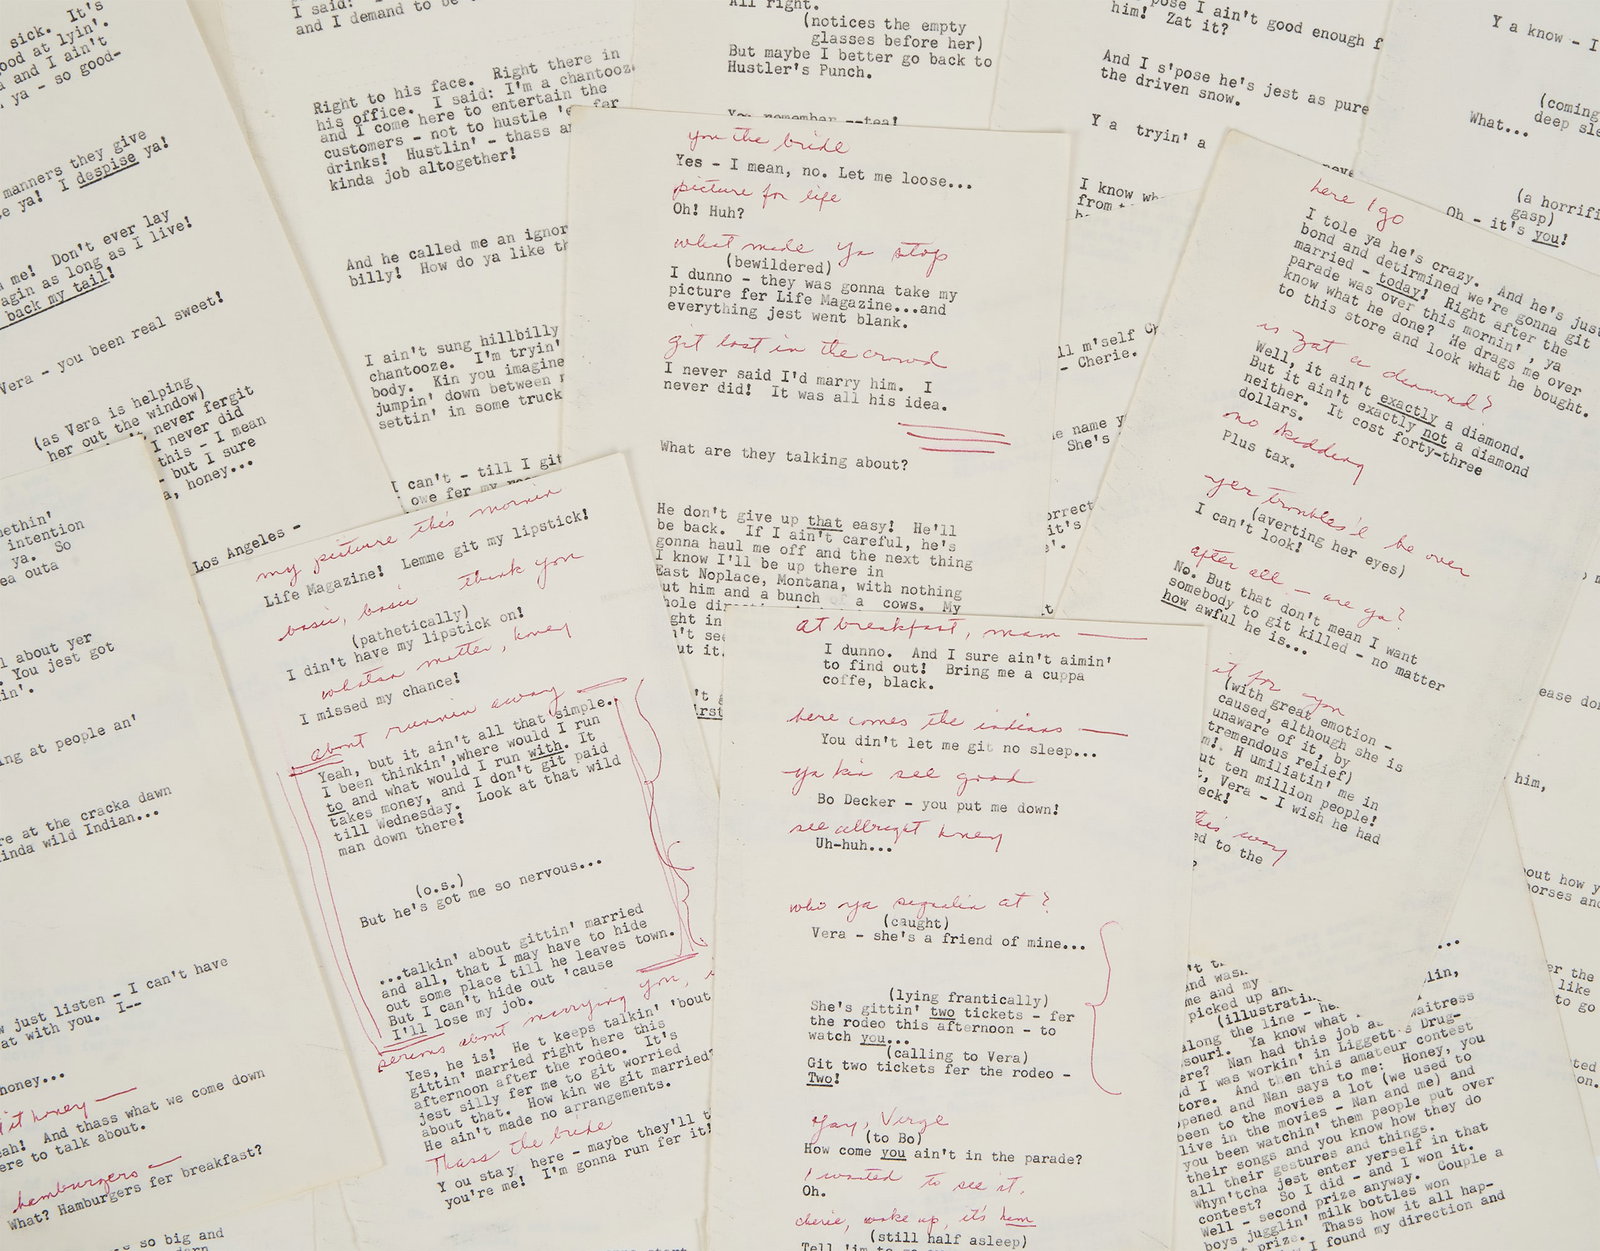 sick. It's
good at lyin'.
and I ain't
ya - so good-
manners they give
ya! I despise ya!
me! Don't ever lay
agin as long as I live!
back my tail!
Vera - you been real sweet!
(as Vera is helping
her out the window)
never fergit
I never did
this - I mean
- but I sure
honey...
Los Angeles -
I said:
and I demand to be
Right to his face. Right there in
his office. I said: I'm a chantooz
and I come here to entertain the
customers - not to hustle 'em fer
drinks! Hustlin' - thass an
kinda job altogether!
And he called me an ignor
billy! How do ya like th
I ain't sung hillbilly
chantooze. I'm tryin'
body. Kin you imagine
jumpin' down between
settin' in some truck
I can't - till I git
owe fer my
All right.
(notices the empty
glasses before her)
But maybe I better go back to
Hustler's Punch.
You remember --tea!
you the bride
Yes - I mean, no. Let me loose...
picture for life
Oh! Huh?
what made ya stop
(bewildered)
I dunno - they was gonna take my
picture fer Life Magazine...and
everything jest went blank.
git lost in the crowd
I never said I'd marry him. I
never did! It was all his idea.
What are they talking about?
He don't give up that easy! He'll
be back. If I ain't careful, he's
gonna haul me off and the next thing
I know I'll be up there in
East Noplace, Montana, with nothing
but him and a bunch of a cows. My
pose I ain't good enough f
him! Zat it?
And I s'pose he's jest as pure
the driven snow.
Y a tryin' a
I know wh
from
m'self
- Cherie.
name y
She's
Y a know - I
(coming
deep sle
What...
(a horrifi
gasp)
Oh - it's you!
here I go
I tole ya he's crazy. And he's just
bond and detirmined we're gonna git
married - today! Right after the
parade was over this mornin', ya
know what he done? He drags me over
to this store and look what he bought.
is zat a diamond?
Well, it ain't exactly a diamond.
But it ain't exactly not a diamond
neither. It cost forty-three
dollars.
no kidding
Plus tax.
yer troubles'l be over
(averting her eyes)
I can't look!
after all - are ya?
No. But that don't mean I want
somebody to git killed - no matter
how awful he is...
it for you
(with great emotion -
caused, although she is
unaware of it, by
tremendous relief)
H umiliatin' me in
ten million people!
Vera - I wish he had
this way
to the
ethin'
intention
ya. So
outa
about yer
You jest got
in'.
ing at people an'
at the cracka dawn
kinda wild Indian...
just listen - I can't have
at with you. I--
honey...
it honey
And thass what we come down
ere to talk about.
hamburgers
What? Hamburgers fer breakfast?
so big and
my picture this mornin
Life Magazine! Lemme git my lipstick!
basic, basic thank you
(pathetically)
I din't have my lipstick on!
whatsa matter, honey
I missed my chance!
about runnin away
Yeah, but it ain't all that simple.
I been thinkin',where would I run
to and what would I run with. It
takes money, and I don't git paid
till Wednesday. Look at that wild
man down there!
(o.s.)
But he's got me so nervous...
...talkin' about gittin' married
and all, that I may have to hide
out some place till he leaves town.
But I can't hide out 'cause
I'll lose my job.
serious about marrying you,
Yes, he is! He t keeps talkin' 'bout
gittin' married right here this
afternoon after the rodeo. It's
jest silly fer me to git worried
about that. How kin we git married?
He ain't made no arrangements.
Thass the bride
Y ou stay here - maybe they'll t
you're me! I'm gonna run fer it!
at breakfast, mam
I dunno. And I sure ain't aimin'
to find out! Bring me a cuppa
coffe, black.
here comes the indians
You din't let me git no sleep...
ya kin see good
Bo Decker - you put me down!
see allright honey
Uh-huh...
who ya squealin at?
(caught)
Vera - she's a friend of mine...
(lying frantically)
She's gittin' two tickets - fer
the rodeo this afternoon - to
watch you...
(calling to Vera)
Git two tickets fer the rodeo -
Two!
Yay, Virge
(to Bo)
How come you ain't in the parade?
I wanted to see it.
Oh.
cherie, wake up, it's him
(still half asleep)
Tell 'im to
ease don
him,
out how y
horses and
er the
like
to go
and was
me and my
picked up an
(illustratin
along the line - he
souri. Ya know what
ere? Nan had this job as waitress
I was workin' in Liggett's Drug-
tore. And then this amateur contest
opened and Nan says to me: Honey, you
been to the movies a lot (we used to
live in the movies - Nan and me) and
you been watchin' them people put over
their songs and you know how they do
all their gestures and things.
Whyn'tcha jest enter yerself in that
contest? So I did - and I won it.
Well - second prize anyway. Couple a
boys jugglin' milk bottles won
prize. Thass how it all hap-
I found my direction and